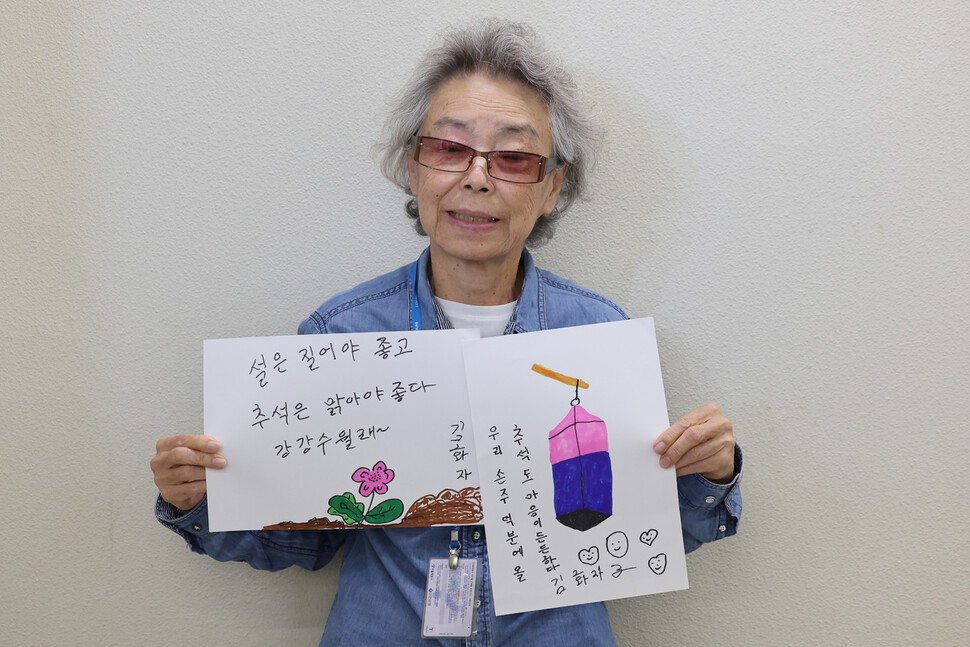 설은 질어야 좋고
추석은 맑아야 좋다
강강수월래~
김화자
우리 손주 덕분에 올
추석도 마음이든든하다
김화자